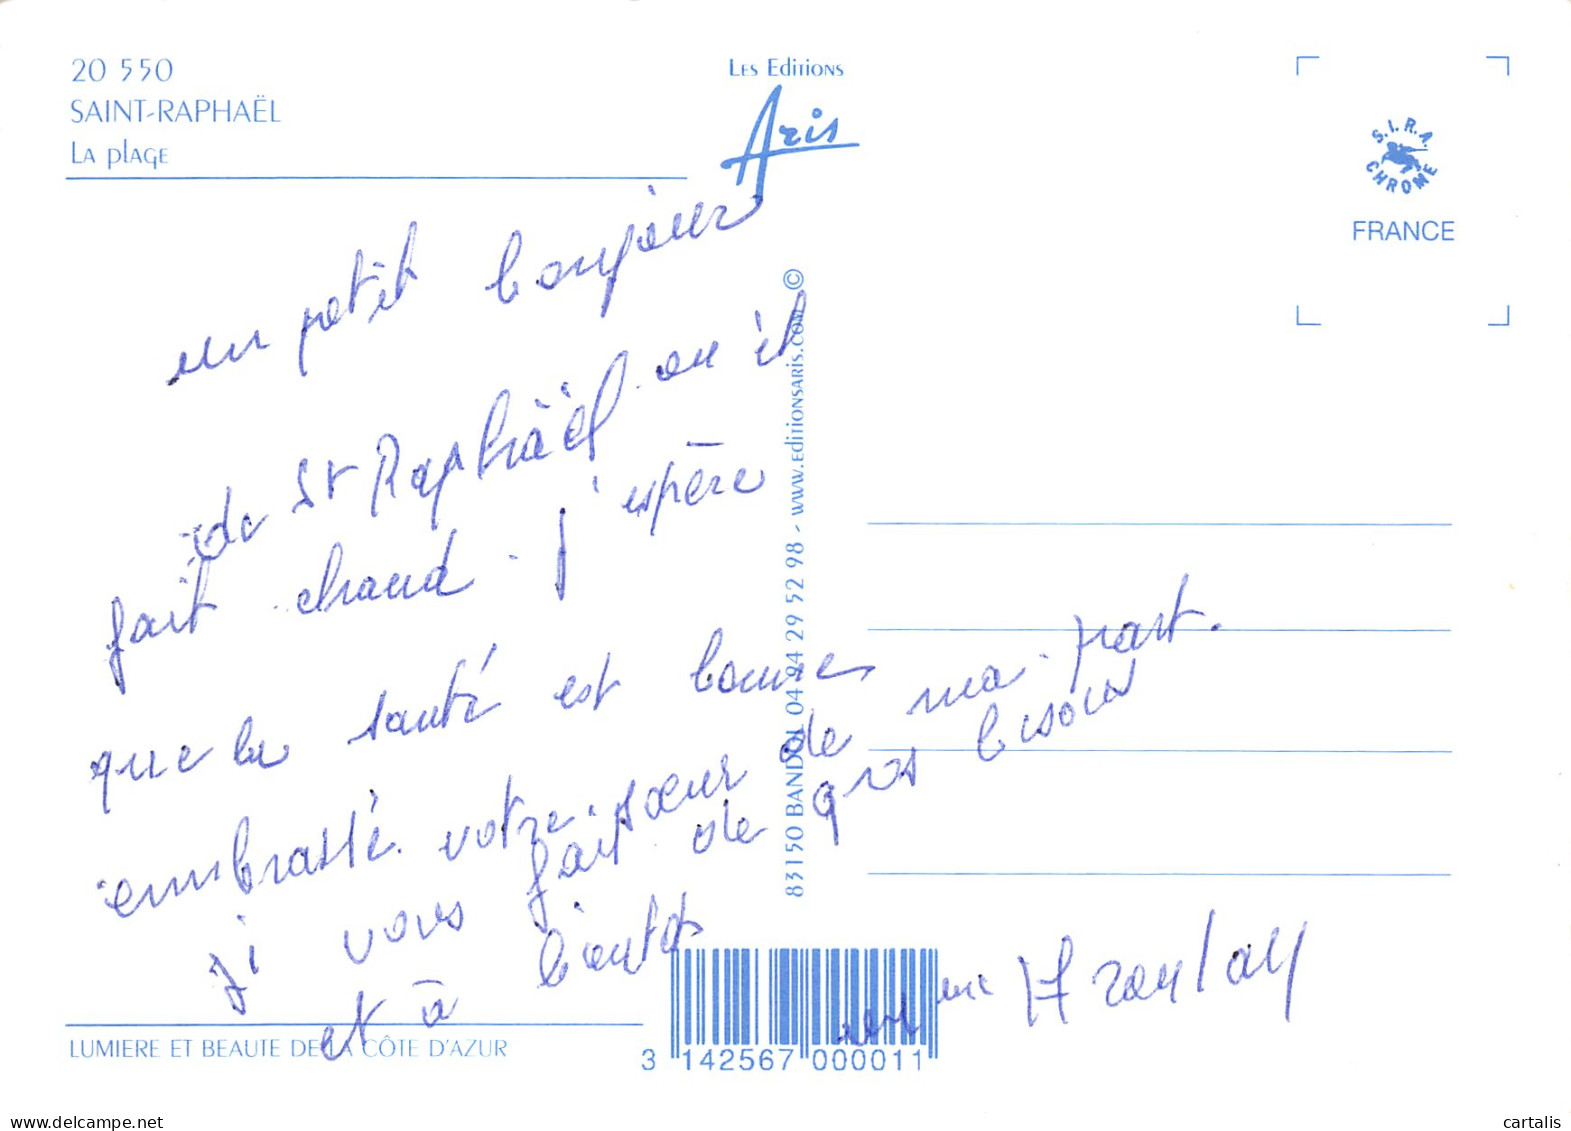 20 550
SAINT-RAPHAËL
La plage
Les Editions
Aris
S.I.R.A.
CHROME
FRANCE
un petit bonjour
de St Raphaël ou il
fait chaud. j'espère
que la santé est bonne
embrassé votre soeur de ma part.
ji vous fait de gros bisous
et à bientot
83150 BANDOL 04 94 29 52 98 - WWW.EDITIONSARIS.COM ©
LUMIERE ET BEAUTE DE LA CÔTE D'AZUR
3 142567 000011
cartalis
www.delcampe.net